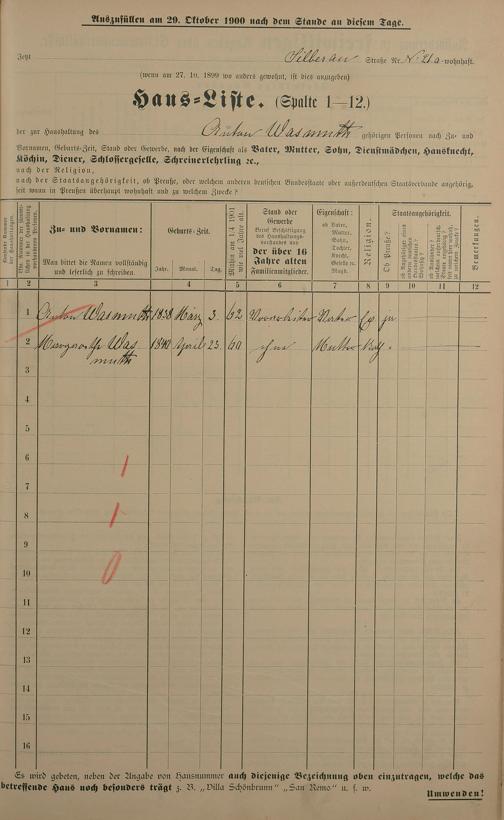 Auszufüllen am 29. Oktober 1900 nach dem Stande an diesem Tage.
Jetzt Silberau Straße Nr. No 21a wohnhaft.
(wenn am 27. 10. 1899 wo anders gewohnt, ist dies anzugeben)
Haus-Liste. (Spalte 1—12.)
der zur Haushaltung des Anton Wasmuth gehörigen Personen nach Zu- und
Vornamen, Geburts-Zeit, Stand oder Gewerbe, nach der Eigenschaft als Vater, Mutter, Sohn, Dienstmädchen, Hausknecht,
Köchin, Diener, Schlossergeselle, Schreinerlehrling ꝛc.,
nach der Religion,
nach der Staatsangehörigkeit, ob Preuße, oder welchem anderen deutschen Bundesstaate oder außerdeutschen Staatsverbande angehörig,
seit wann in Preußen überhaupt wohnhaft und zu welchem Zwecke?
Zu- und Vornamen:
Man bittet die Namen vollständig und leserlich zu schreiben.
Geburts-Zeit.
Jahr. Monat. Tag.
Mithin am 1.4. 1901 wie viel Jahre alt.
Stand oder Gewerbe
der über 16 Jahre alten Familienmitglieder.
Eigenschaft:
ob Vater, Mutter, Sohn, Tochter, Knecht, Geselle rc. Magd.
Religion.
Ob Preuße?
Staatsangehörigkeit.
Bemerkungen.
1 2 3 4 5 6 7 8 9 10 11 12
1 Anton Wasmuth 1838 März 3. 62
2 Wasmuth 1840 April 23. 60 ohne Mutter
3
4
5
6 1
7
8 1
9
10 0
11
12
13
14
15
16
Es wird gebeten, neben der Angabe von Hausnummer auch diejenige Bezeichnung oben einzutragen, welche das
betreffende Haus noch besonders trägt z. B. „Villa Schönbrunn" „San Remo" u. s. w.
Umwenden!